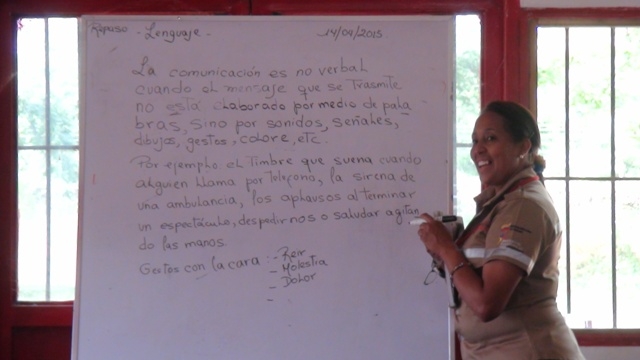 Repaso - Lenguaje - 14/09/2015
La comunicación es no verbal
cuando el mensaje que se trasmite
no está elaborado por medio de pala
bras, sino por sonidos, señales,
dibujos, gestos, colore, etc.
Por ejemplo: el Timbre que suena cuando
alguien llama por Teléfono, la sirena de
una ambulancia, los aplausos al terminar
un espectáculo, despedirnos o saludar agitan
do las manos.
Gestos con la cara: - Reir
- Molestia
- Dolor
-